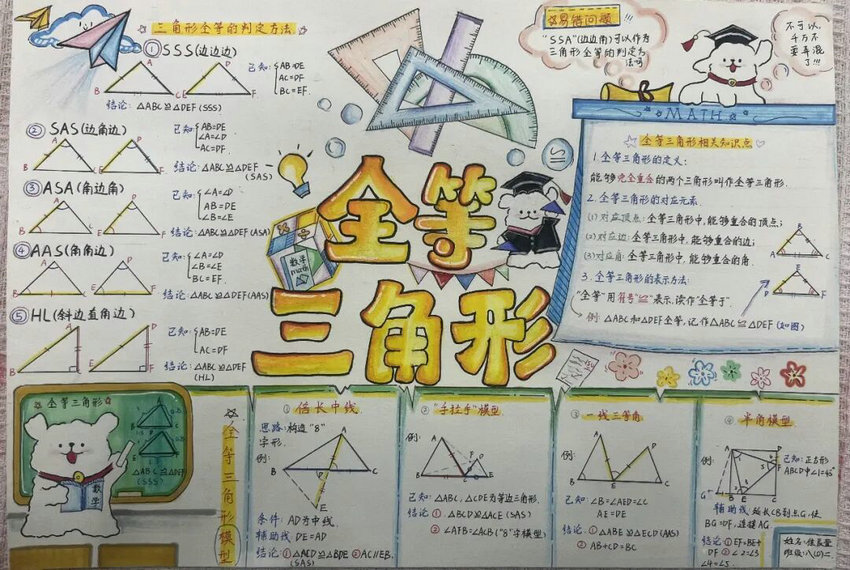 三角形全等的判定方法
① SSS(边边边)
已知: AB=DE
AC=DF
BC=EF.
结论: △ABC≌△DEF(SSS)
② SAS(边角边)
已知: AB=DE
∠A=∠D
AC=DF.
结论: △ABC≌△DEF
(SAS)
③ ASA(角边角)
已知: ∠A=∠D
AB=DE
∠B=∠E
结论: △ABC≌△DEF(ASA)
④ AAS(角角边)
已知: ∠A=∠D
∠B=∠E
BC=EF.
结论: △ABC≌△DEF(AAS)
⑤ HL(斜边直角边)
已知: AB=DE
AC=DF
结论: △ABC≌△DEF
(HL)
全等
三角形
数学
math
易错问题!!!
"SSA"(边边角)可以作为
三角形全等的判定方
法吗
不可以,
千万不
要弄混
了!!!
MATH
全等三角形相关知识点
1.全等三角形的定义:
能够完全重合的两个三角形叫作全等三角形.
2.全等三角形的对应元素.
(1)对应顶点:全等三角形中,能够重合的顶点;
(2)对应边:全等三角形中,能够重合的边;
(3)对应角:全等三角形中,能够重合的角.
3.全等三角形的表示方法:
"全等"用符号"≌"表示,读作"全等于".
例:△ABC和△DEF全等,记作△ABC≌△DEF(如图)
全等三角形
△ABC≌△DEF
(SSS)
数学
全等三角形模型
① 倍长中线
思路:构造"8"
字形.
例:
条件: AD为中线.
辅助线: DE=AD
结论:①△ACD≌△BDE ②AC∥EB.
(SAS)
② "手拉手"模型
例:
已知:△ABC,△CDE为等边三角形.
结论:①△BCD≌△ACE(SAS)
②∠AFB=∠ACB("8"字模型)
③ 一线三等角
例:
已知:∠B=∠AED=∠C
AE=DE
结论:①△ABE≌△ECD(AAS)
②AB+CD=BC
④ 半角模型
例:
已知:正方形
ABCD中∠1=45°
辅助线:延长CB到点G,使
BG=DF,连接AG
结论:①EF=BE+
DF ②∠2=∠3
∠4=∠5
姓名:
班级:八